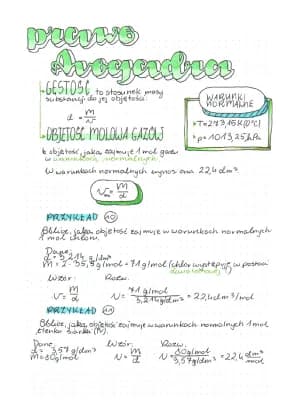 prawo
Avogadra
GĘSTOŚĆ to stosunek masy
substancji do jej objętości.
d = m/V
WARUNKI
NORMALNE
• T=273,15K (0°C)
• p=1013,25hPa
OBJĘTOŚĆ MOLOWA GAZÓW
to objętość, jaką zajmuje 1 mol gazu
w warunkach normalnych.
W warunkach normalnych wynosi ona 22,4 dm³.
Vm = M/d
PRZYKŁAD 10
Oblicz, jaką objętość zajmuje w warunkach normalnych
1 mol chloru.
Dane:
d = 3,214 g/dm³
M = 2 · 35,5 g/mol = 71 g/mol (chlor występuje w postaci
dwuatomowej)
Wzór: Rozw.
V = M/d V = 71 g/mol / 3,214 g/dm³ = 22,4 dm³/mol
PRZYKŁAD 11
Oblicz, jaką objętość zajmuje w warunkach normalnych 1 mol
tlenku siarki (IV).
Dane: Wzór: Rozw.
d = 3,57 g/dm³
M = 80 g/mol V = M/d V = 80 g/mol / 3,57 g/dm³ = 22,4 dm³/mol